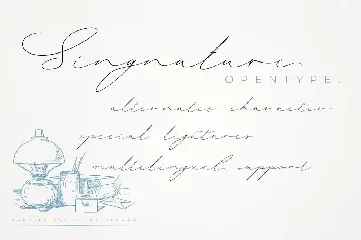 Singnature.
OPENTYPE.
alternates character
special ligatures
multilingual support